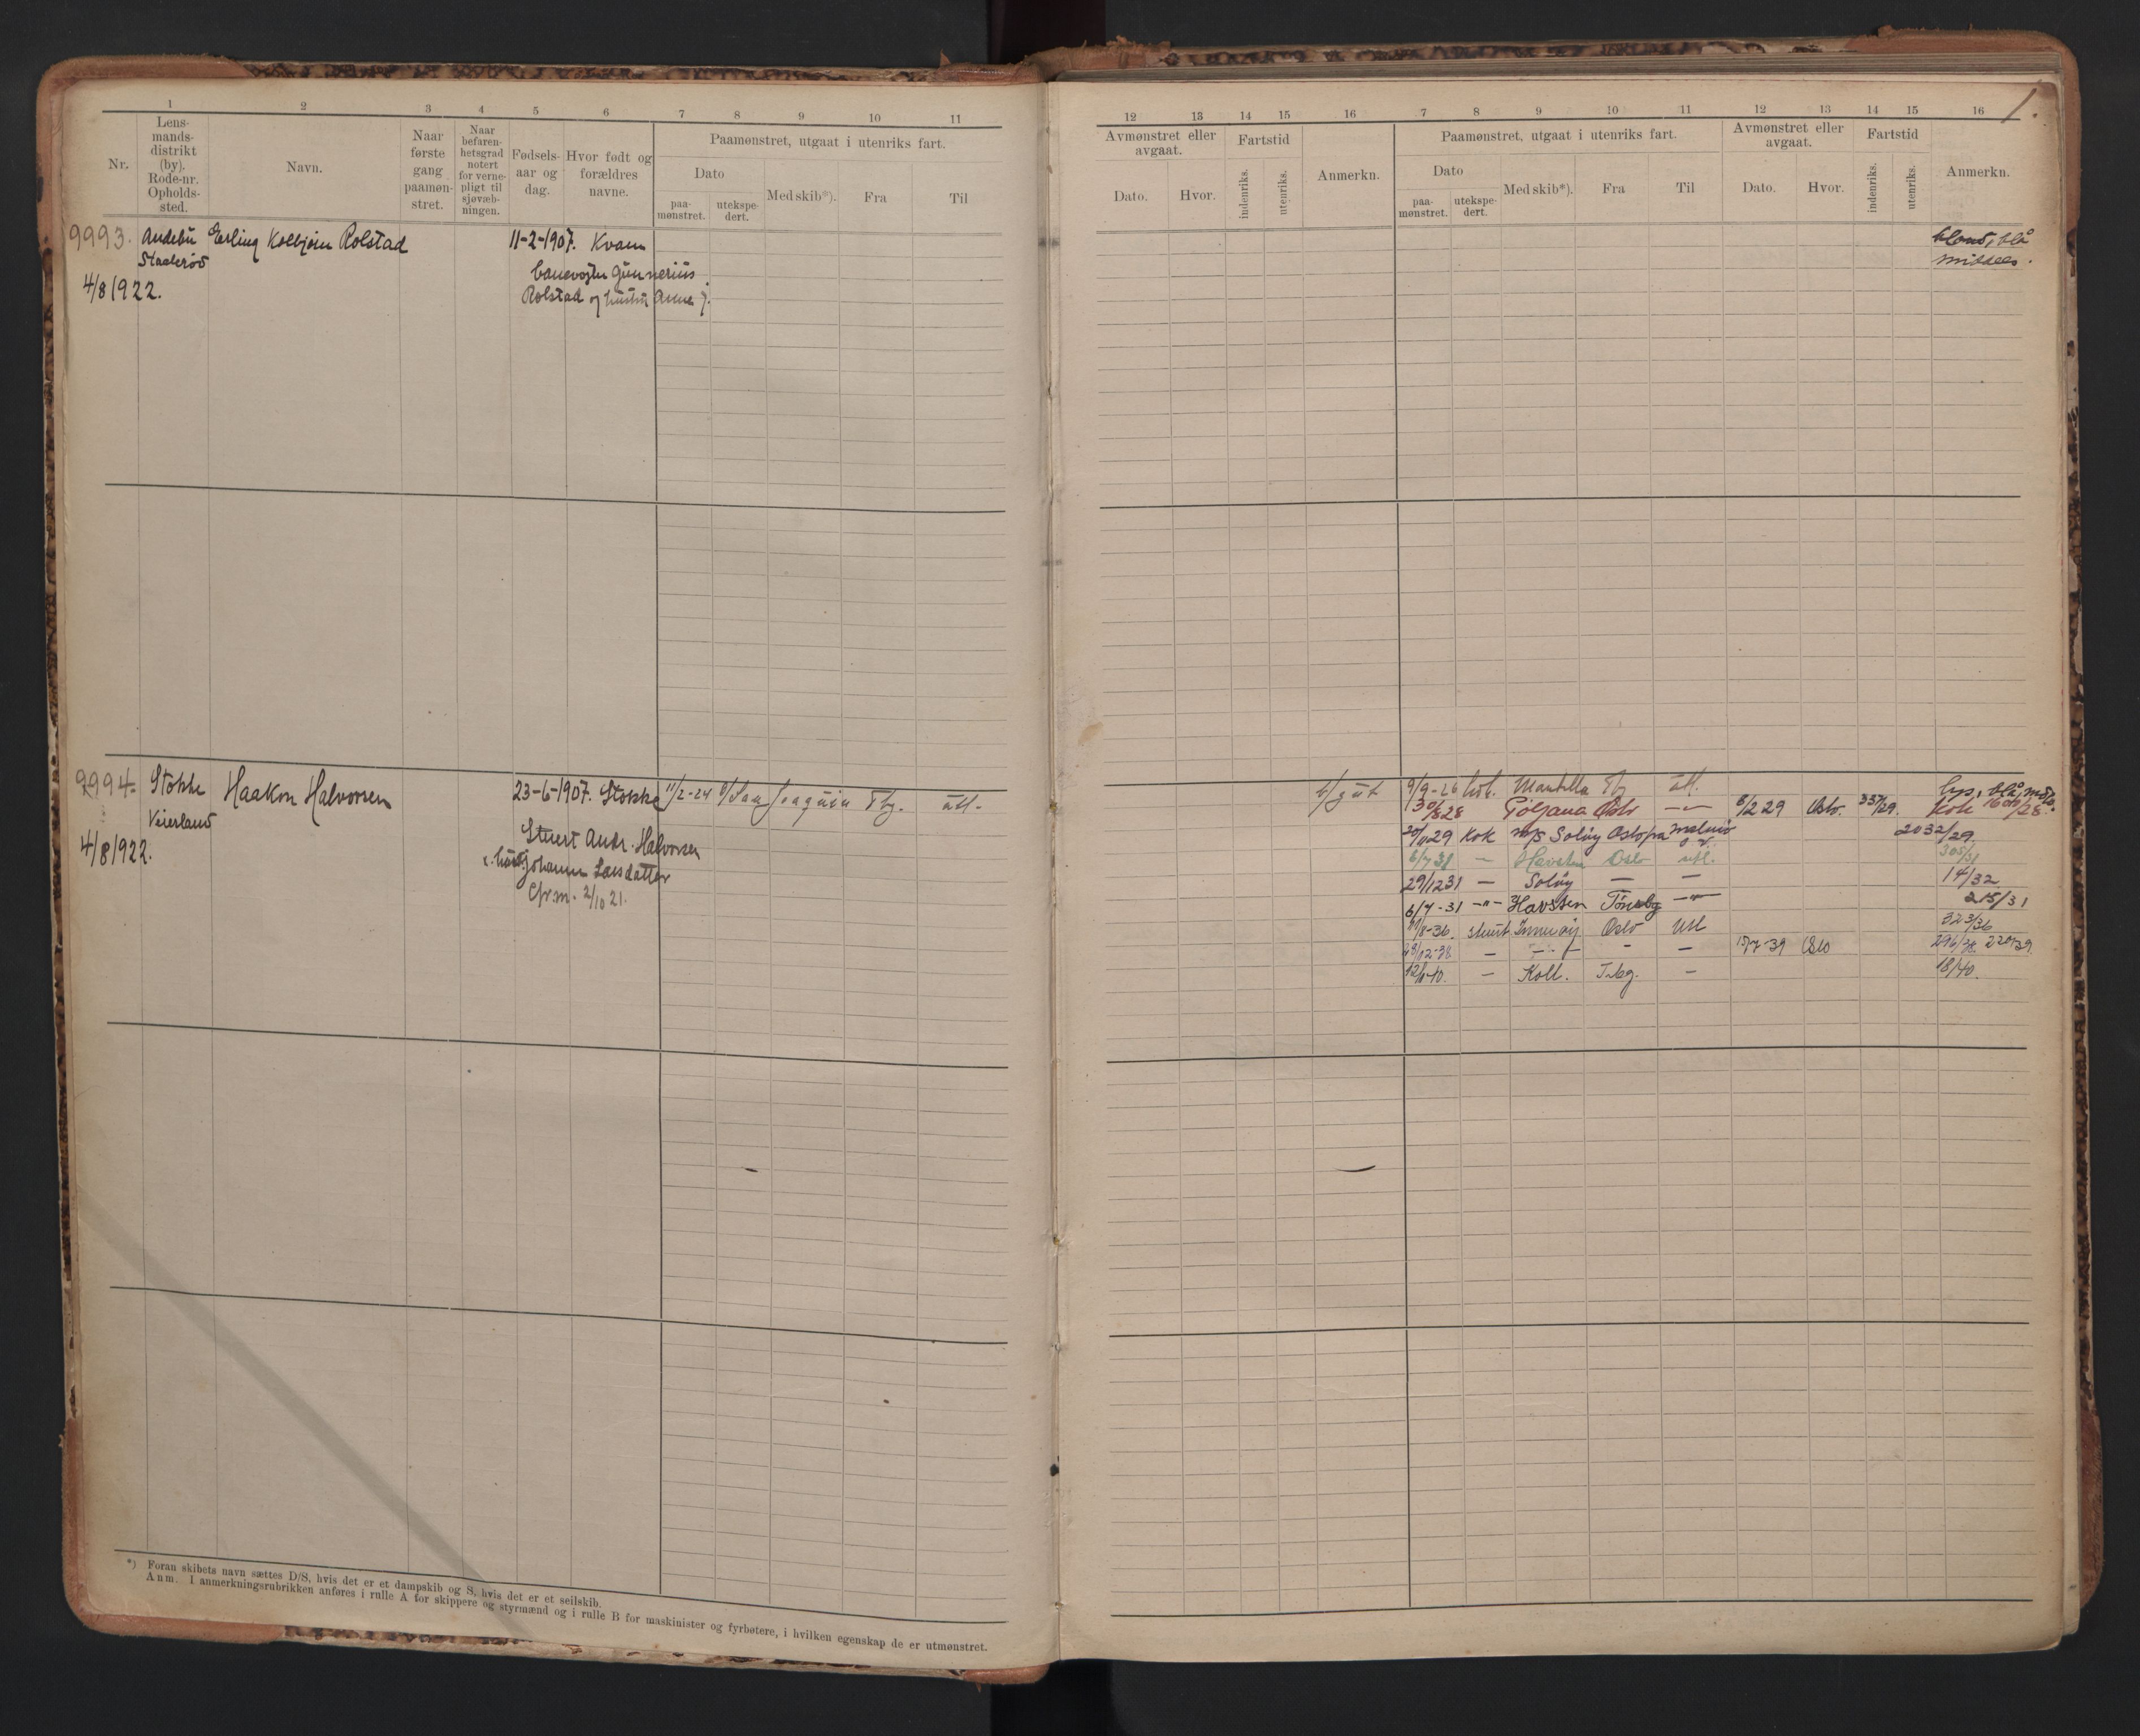 1.
1 2 3 4 5 6 7 8 9 10 11
Nr.
Lens-
mands-
distrikt
(by).
Rode-nr.
Opholds-
sted.
Navn.
Naar
første
gang
paamøn-
stret.
Naar
befaren-
hetsgrad
notert
for verne-
pligt til
sjøvæb-
ningen.
Fødsels-
aar og
dag.
Hvor født og
forældres
navne.
Paamønstret, utgaat i utenriks fart.
Dato
paa-
mønstret.
utekspe-
dert.
Med skib*).
Fra
Til
9993. Andebu Erling Kolbjørn Rolstad 11-2-1907. Kvam
4/8 1922.
Rolstad og hustru Anne J.
9994. Stokke Haakon Halvorsen 23-6-1907. Stokke 11/2-24 San Joaquin Tbg. utl.
Veierland
4/8 1922.
Stuert Andr. Halvorsen
Johanne Larsdatter
2/10 21.
*) Foran skibets navn sættes D/S, hvis det er et dampskib og S, hvis det er et seilskib.
Anm. I anmerkningsrubrikken anføres i rulle A for skippere og styrmænd og i rulle B for maskinister og fyrbøtere, i hvilken egenskap de er utmønstret.
12 13 14 15 16 7 8 9 10 11 12 13 14 15 16
Avmønstret eller
avgaat.
Dato.
Hvor.
Fartstid
indenriks.
utenriks.
Anmerkn.
Paamønstret, utgaat i utenriks fart.
Dato
paa-
mønstret.
utekspe-
dert.
Med skib*).
Fra
Til
Avmønstret eller
avgaat.
Dato.
Hvor.
Fartstid
indenriks.
utenriks.
Anmerkn.
blond, blå
middels.
9/9-26 Mantilla Tbg utl. lys, blå, mdls.
30/8 28 Poljana Oslo 8/2 29 Oslo. 337/29. kok
20/11 29 kok m/s Soløy Oslo 2032/29
6/7 31 — Havsten Oslo utl. 305/31
29/12 31 — Soløy — — 14/32
6/7-31 -"- Havsten Tønsbg -"- 215/31
8-36. stuert Innerøy Oslo Utl 323/36
12-38 — — - — 7-39 Oslo 296/38. 220/39.
- Koll. T.bg. — 18/40.